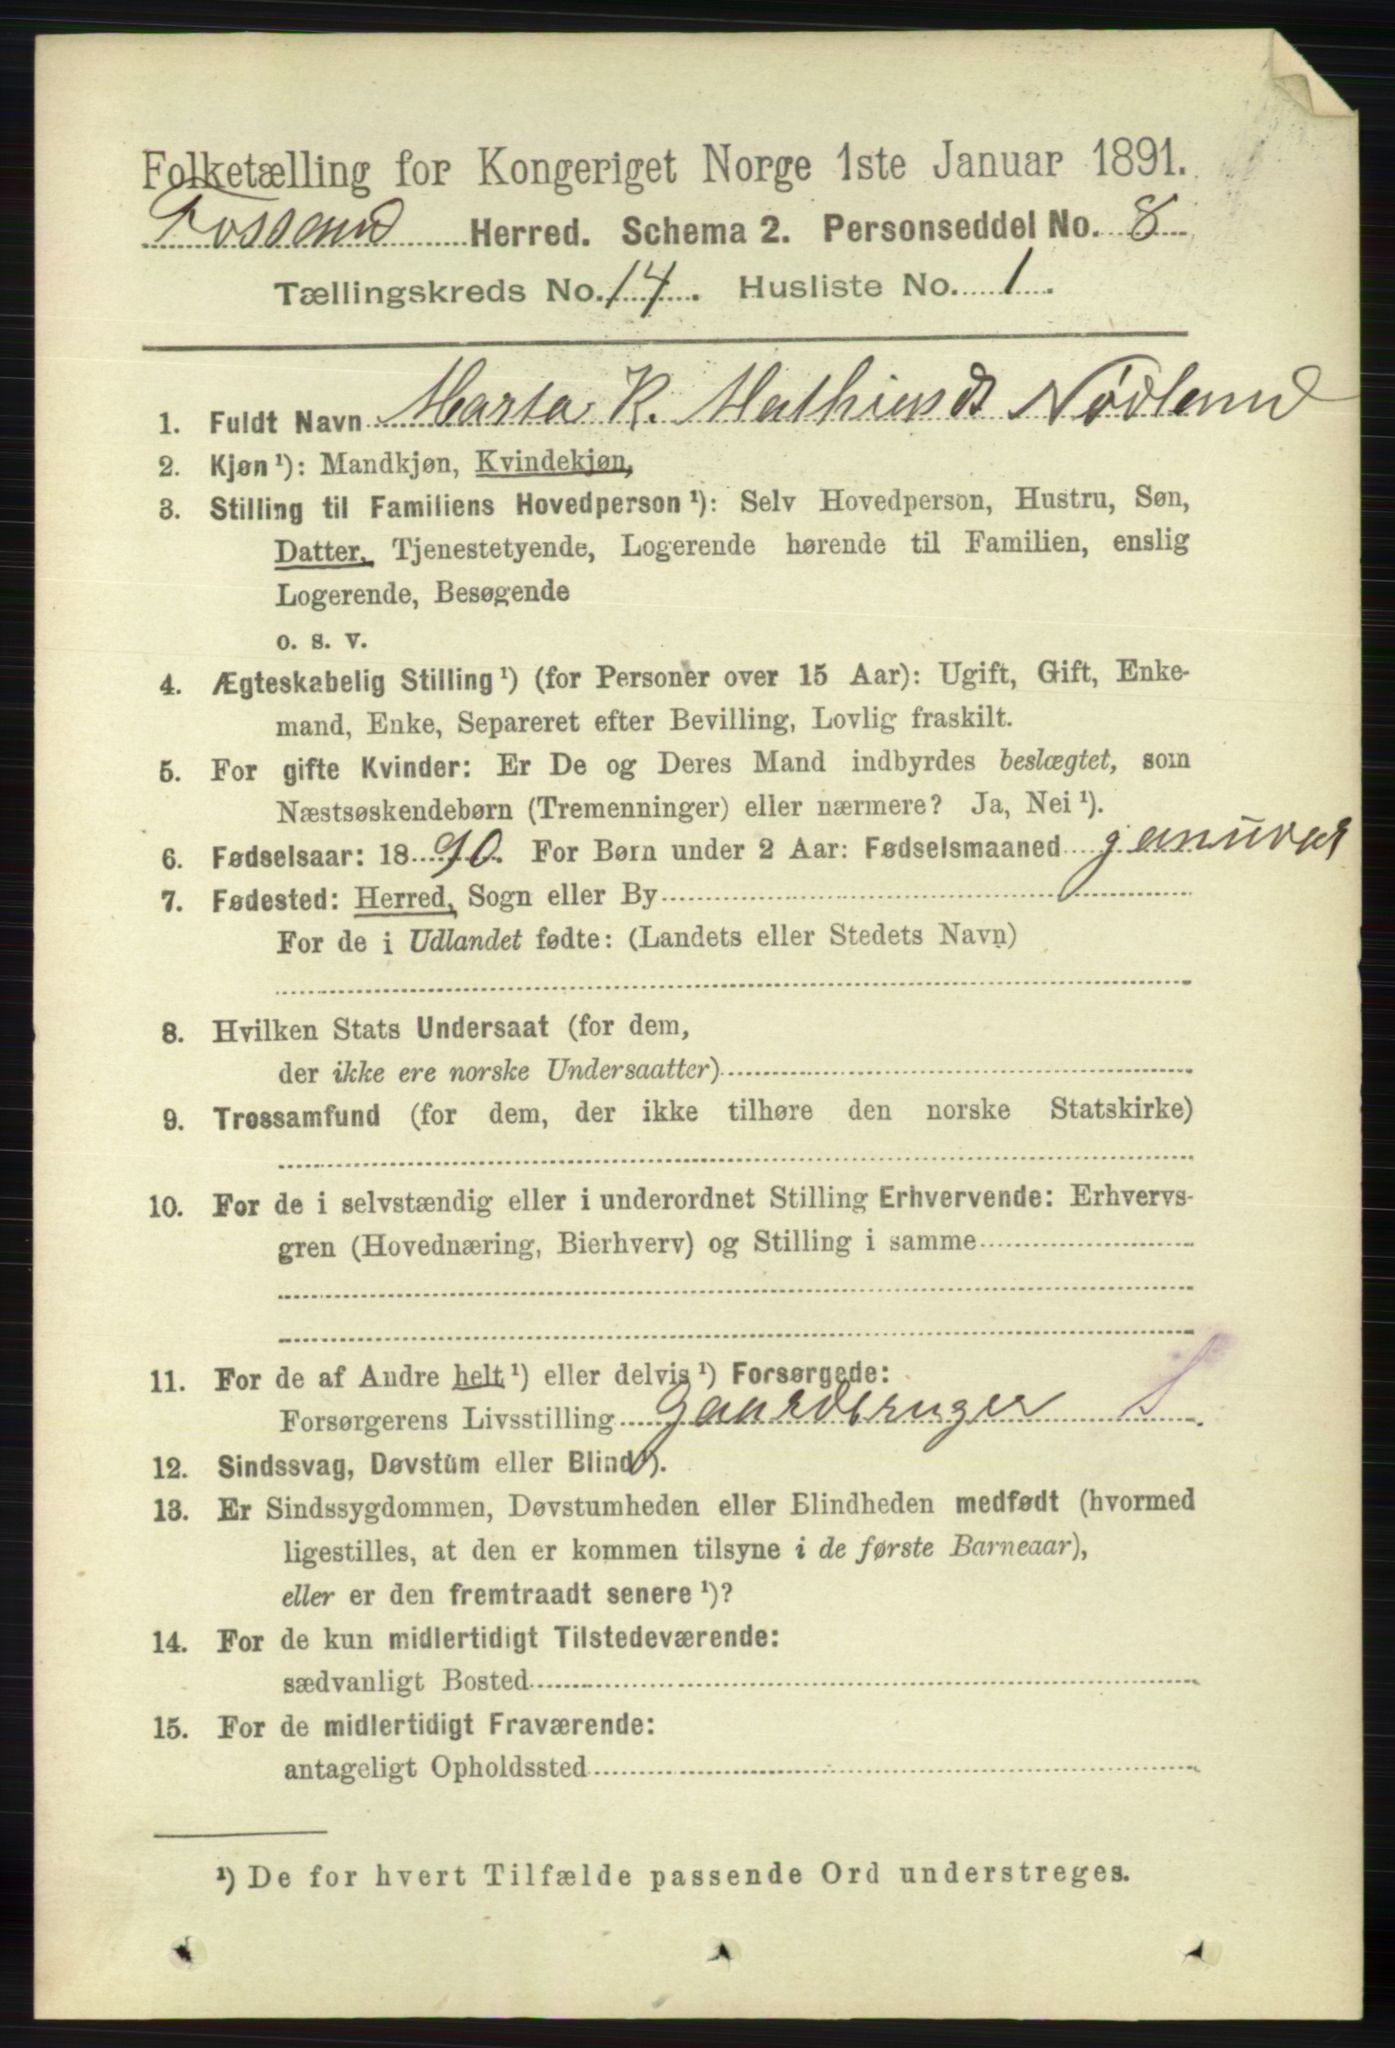 Folketælling for Kongeriget Norge 1ste Januar 1891.
Fossand Herred. Schema 2. Personseddel No. 8
Tællingskreds No. 14. Husliste No. 1.
1. Fuldt Navn Marta K. Mathiasdt Nødland
2. Kjøn ¹): Mandkjøn, Kvindekjøn,
3. Stilling til Familiens Hovedperson ¹): Selv Hovedperson, Hustru, Søn,
Datter, Tjenestetyende, Logerende hørende til Familien, enslig
Logerende, Besøgende
o. s. v.
4. Ægteskabelig Stilling ¹) (for Personer over 15 Aar): Ugift, Gift, Enke-
mand, Enke, Separeret efter Bevilling, Lovlig fraskilt.
5. For gifte Kvinder: Er De og Deres Mand indbyrdes beslægtet, som
Næstsøskendebørn (Tremenninger) eller nærmere? Ja, Nei ¹).
6. Fødselsaar: 18 90. For Børn under 2 Aar: Fødselsmaaned januvar
7. Fødested: Herred, Sogn eller By
For de i Udlandet fødte: (Landets eller Stedets Navn)
8. Hvilken Stats Undersaat (for dem,
der ikke ere norske Undersaatter)
9. Trossamfund (for dem, der ikke tilhøre den norske Statskirke)
10. For de i selvstændig eller i underordnet Stilling Erhvervende: Erhvervs-
gren (Hovednæring, Bierhverv) og Stilling i samme
11. For de af Andre helt ¹) eller delvis ¹) Forsørgede:
Forsørgerens Livsstilling gaardbruger S
12. Sindssvag, Døvstum eller Blind ¹).
13. Er Sindssygdommen, Døvstumheden eller Blindheden medfødt (hvormed
ligestilles, at den er kommen tilsyne i de første Barneaar),
eller er den fremtraadt senere ¹)?
14. For de kun midlertidigt Tilstedeværende:
sædvanligt Bosted
15. For de midlertidigt Fraværende:
antageligt Opholdssted
¹) De for hvert Tilfælde passende Ord understreges.